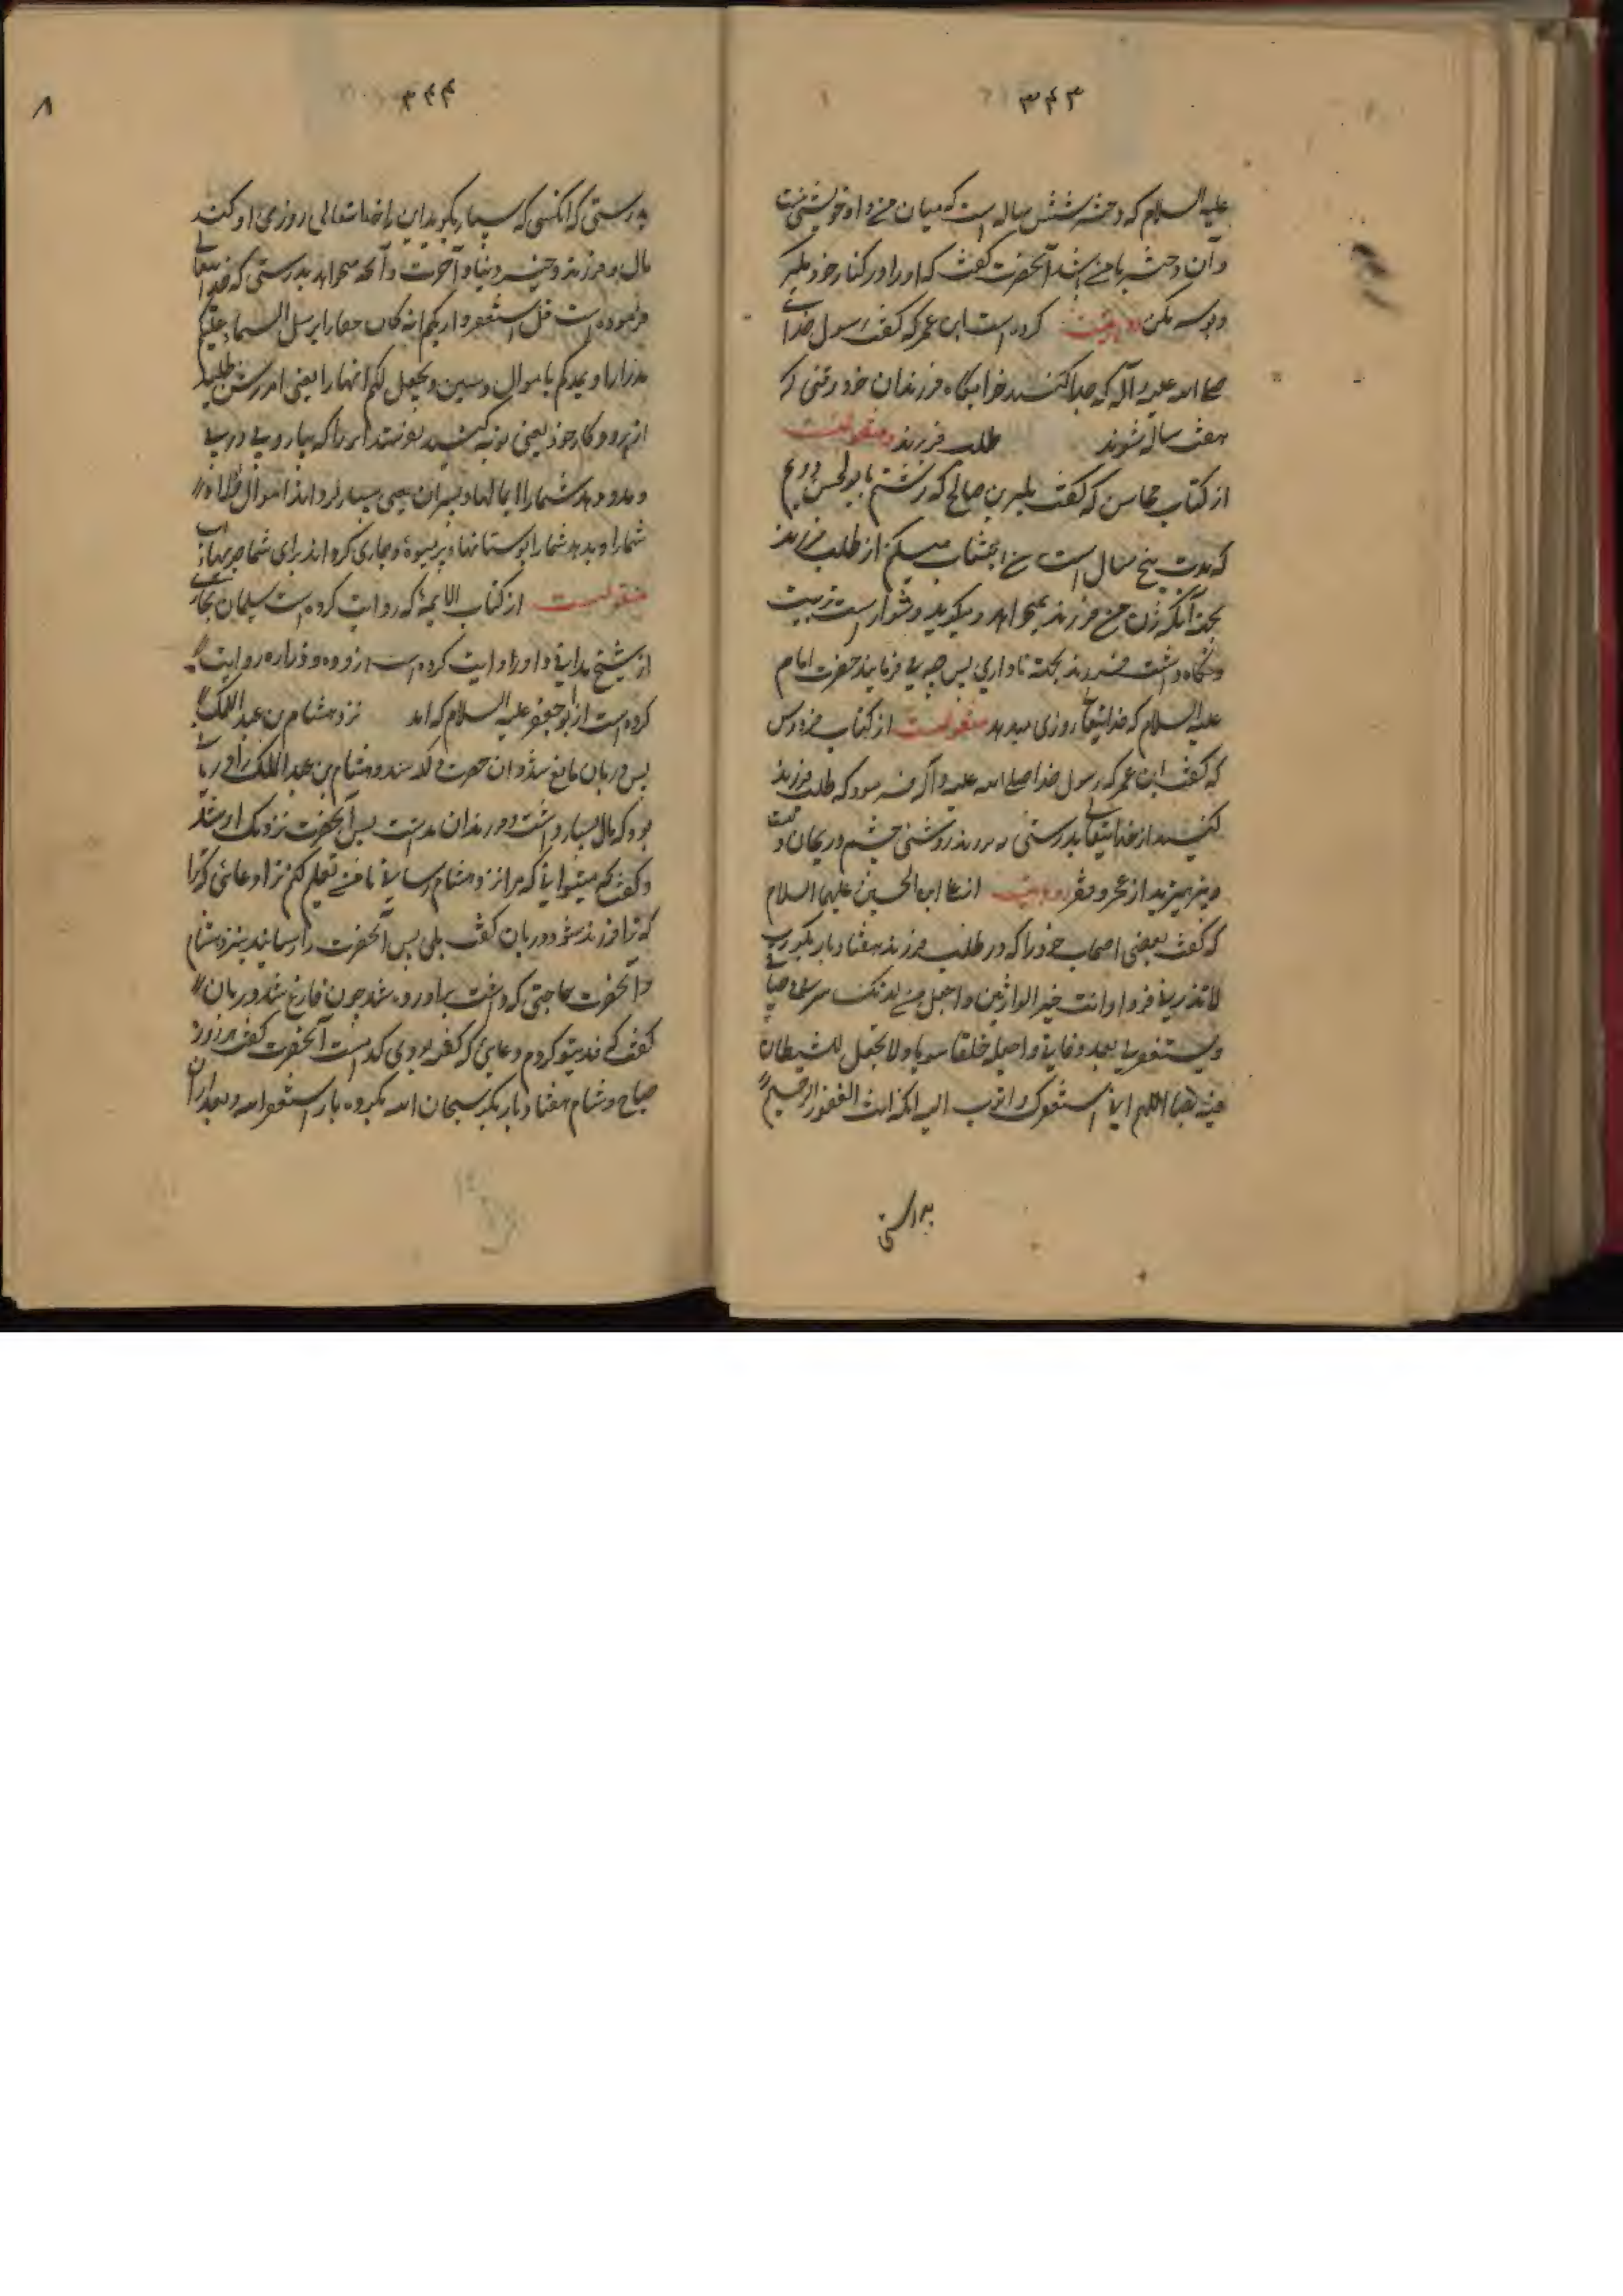 ۳۴۳
علیه السلام که دختر شش ساله است که میان من و او خویشی نیست
و آن دختر با من باشد آنحضرت گفت که او را در کنار خود مگیر
و بوسه مکن روایت کرده است ابن عمر که گفت رسول خدای
صلی الله علیه و آله که جدا کنید خوابگاه فرزندان خود وقتی که
هفت ساله شوند طلب فرزند منقولست
از کتاب محاسن که گفت بکیر بن صالح که نوشتم بابو الحسن ع
که مدت پنج سال است من اجتناب میکنم از طلب فرزند
بجهت آنکه زن من فرزند نمیخواهد و میکوید دشوار است تربیت
و نگاه داشت فرزند بجهت ناداری پس چه می فرمایند حضرت امام
علیه السلام که خدایتعالی روزی میدهد منقولست از کتاب فردوس
که گفت ابن عمر که رسول خدا صلی الله علیه و آله فرمود که طلب فرزند
کنید از خدایتعالی بدرستی که فرزند روشنی چشم و ریحان دلست
و بپرهیزید از عجز و عقر روایت از علی ابن الحسین علیهما السلام
که گفت بعضی اصحاب خود را که در طلب فرزند هفتاد بار بگو رب
لا تذرنی فردا و انت خیر الوارثین و اجعل لی من لدنک
و یستغفر لی بعد وفاتی و اجعله خلقا سویا و لا تجعل للشیطان
فیه نصیبا اللهم انی استغفرک و اتوب الیک انک انت الغفور الرحیم
بدرستی
۳۴۴
۸
بدرستی که آنکسی که بسیار بگوید این را خدایتعالی روزی او کند
مال و فرزند و خیر دنیا و آخرت و آنچه خواهد بدرستی که خدایتعالی
فرموده است قل استغفروا ربکم انه کان غفارا یرسل السماء علیکم
مدرارا و یمددکم باموال و بنین و یجعل لکم انهارا یعنی آمرزش طلبید
از پروردگار خود یعنی توبه کنید بفرستد ابر را که ببارد پی در پی
و مدد دهد شما را بمالها و پسران یعنی بسیار گرداند اموال و اولاد
شما را و بدهد شما را بوستانها و پر میوه و جاری گرداند برای شما جویهای آب
منقولست از کتاب الایمه که روایت کرده است سلیمان بن
از شیخ مداینی و او روایت کرده است از زراره و زراره روایت
کرده است از ابو جعفر علیه السلام که آمد نزد هشام بن عبد الملک
پس دربان مانع شد و آن حضرت و هشام بن عبد الملک را دربانی
بود که مال بسیار داشت و فرزندان نداشت پس آنحضرت نزدیک او شد
و گفت که میتوانی که مرا نزد هشام رسانی تا من تعلیم کنم ترا دعائی
که ترا فرزند شود دربان گفت بلی پس آنحضرت را رسانید بنزد هشام
و آنحضرت حاجتی که داشت برآورده شد چون فارغ شد دربان
گفت که فدیتو کردم دعایی که گفته بودی کدامست آنحضرت گفت هر روز
صباح و شام هفتاد بار بگو سبحان الله بگو ده بار استغفر الله و بعد از آن